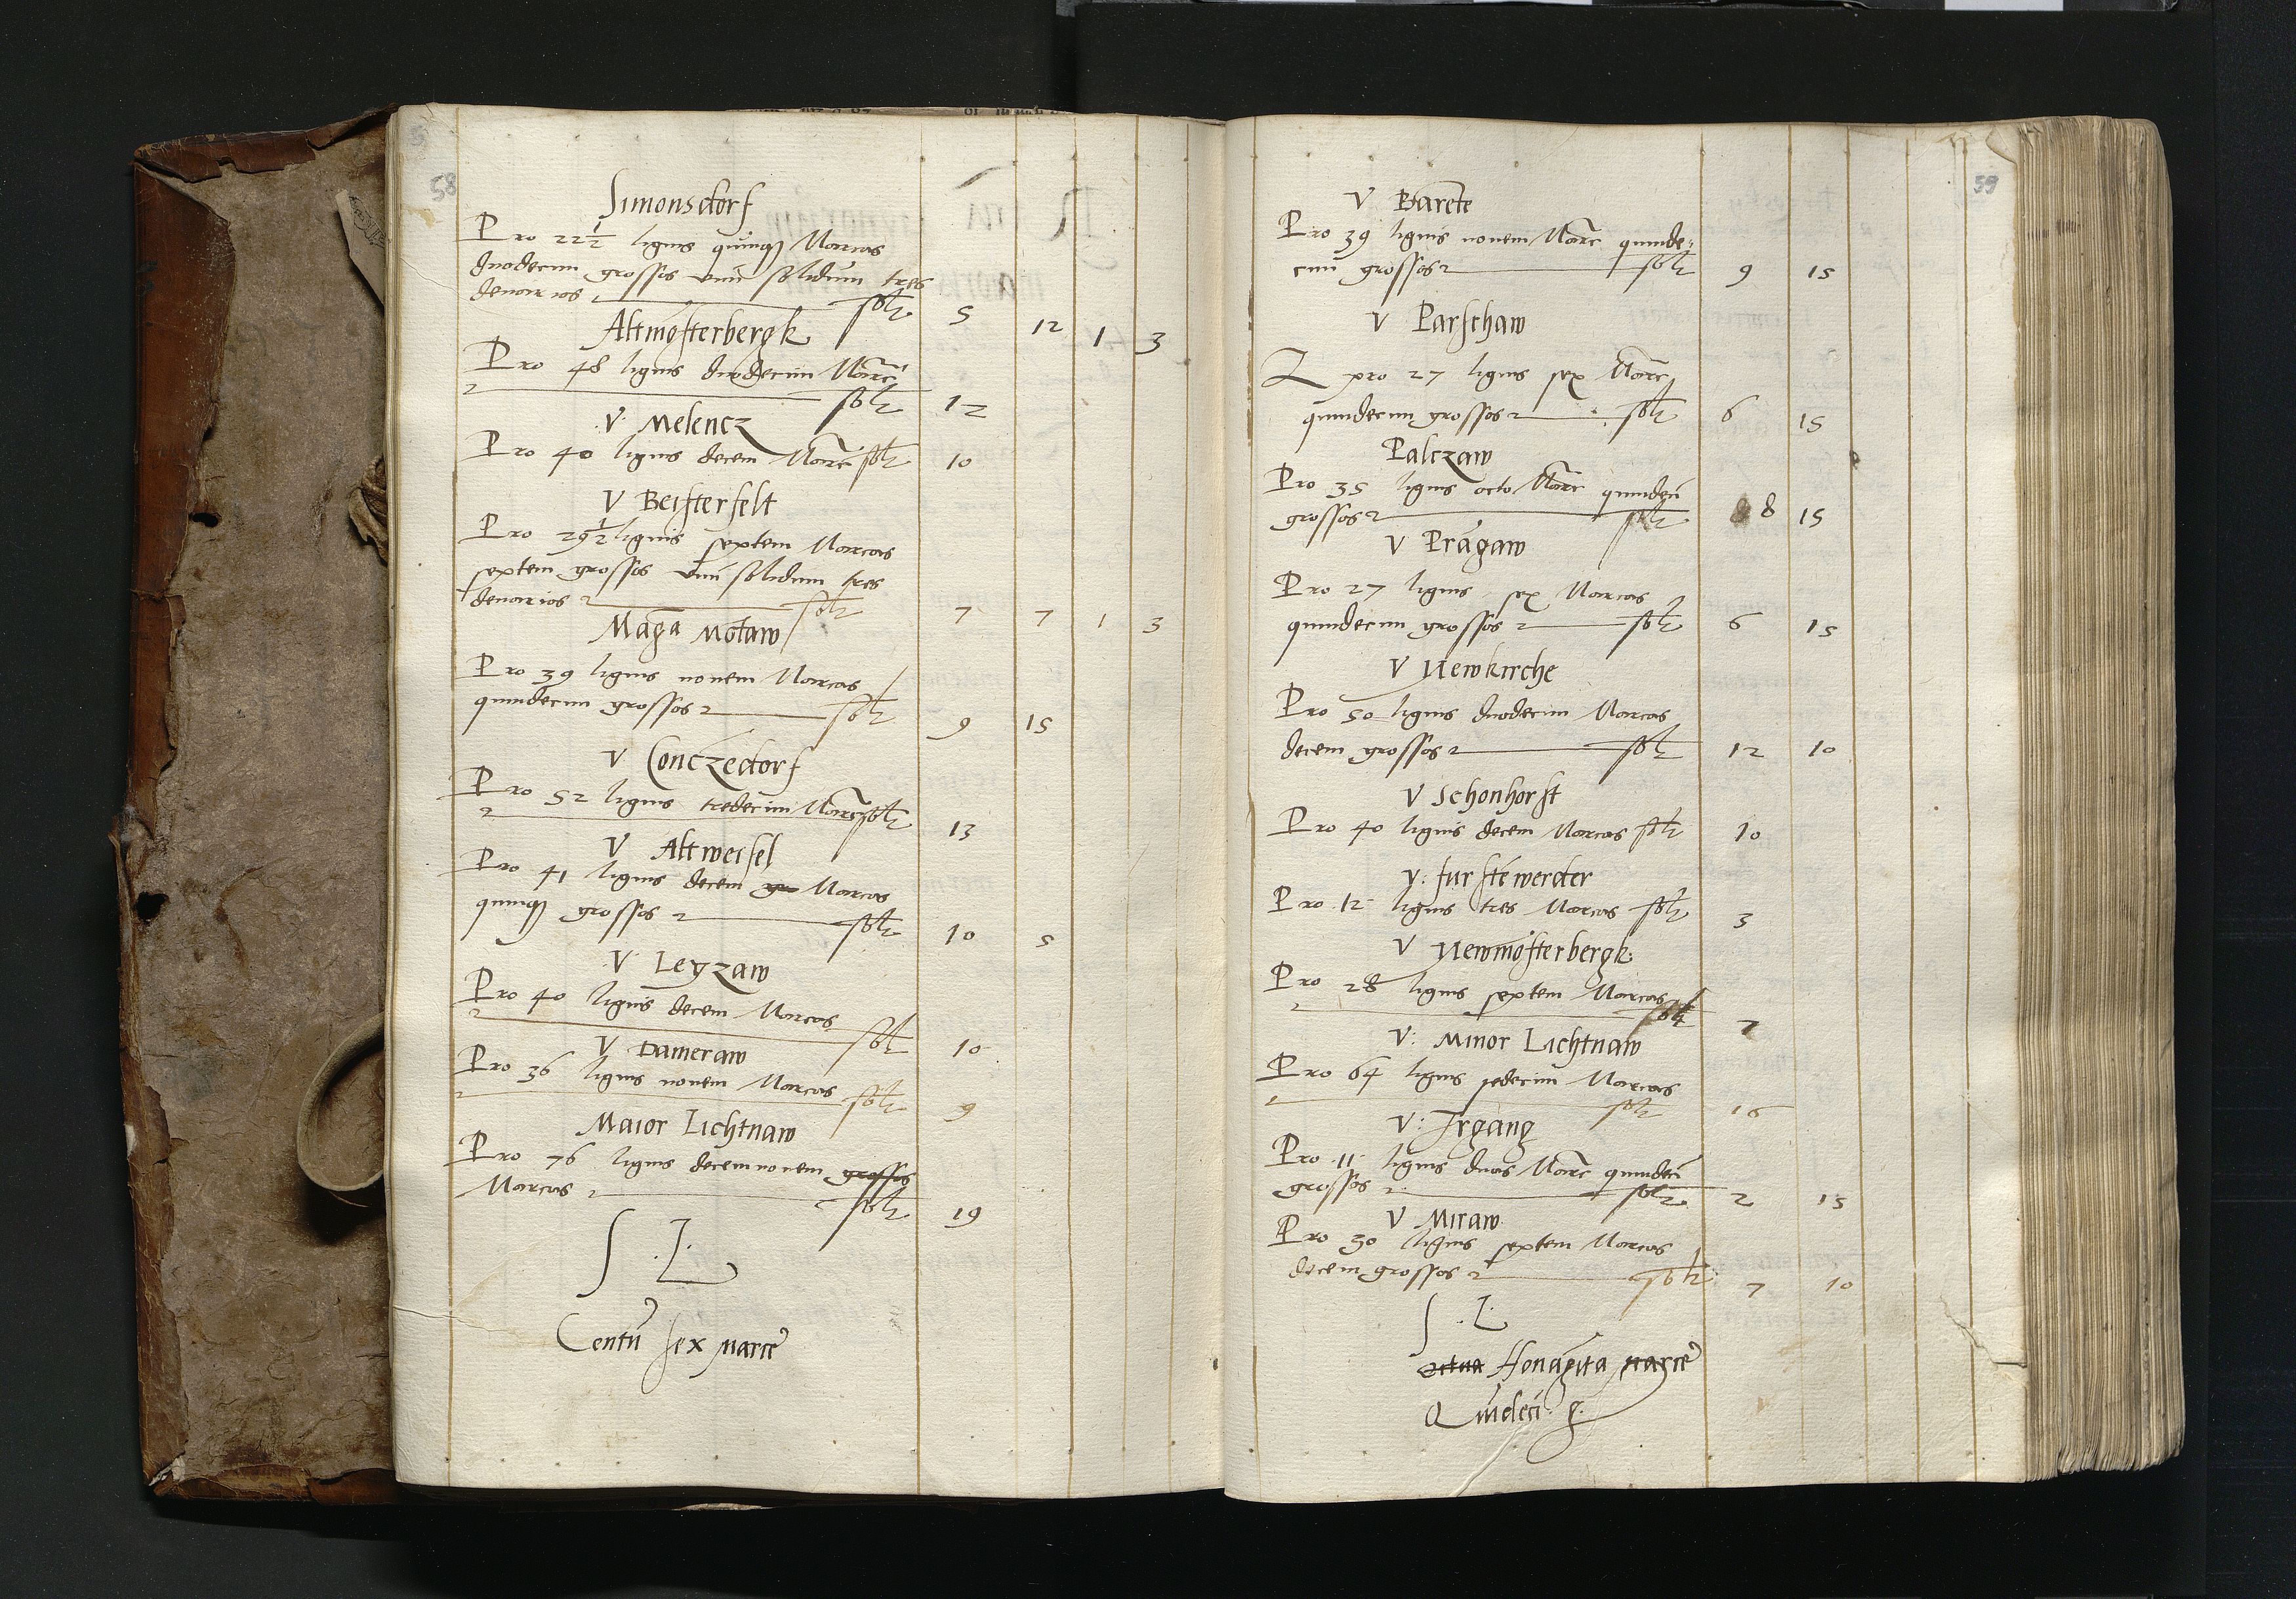 58
Simonsdorf
Pro 22½ lignis quinq3 Marcas
duodecim grossos unū solidum tres
denarios solt 5 12 1 3
Altmosterbergk
Pro 48 lignis duodecim Marc
solt 12
V Melencz
Pro 40 lignis decem Marc solt 10
V Beisterfelt
Pro 29½ lignis septem Marcas
septem grossos unū solidum tres
denarios solt 7 7 1 3
Maga Motaw
Pro 39 lignis novem Marcas
quindecim grossos solt 9 15
V Conczedorf
Pro 52 lignis tredecim Marc solt 13
V Altweisel
Pro 41 lignis decem gr Marcas
quinq3 grossos solt 10 5
V Leyzaw
Pro 40 lignis decem Marcas
solt 10
V Dameraw
Pro 36 lignis novem Marcas
solt 9
Maior Lichtnaw
Pro 76 lignis decemnovem grossos
Marcas solt 19
S. L.
Centū sex marce
59
V Barete
Pro 39 lignis novem Marc quinde=
cim grossos solt 9 15
V Parschaw
pro 27 lignis sex Marc
quindecim grossos solt 6 15
Palczaw
Pro 35 lignis octo Marc quindeci
grossos solt 8 15
V Pragaw
Pro 27 lignis sex Marcas
quindecim grossos solt 6 15
V Newkirche
Pro 50 lignis duodecim Marcas
decem grossos solt 12 10
V Schonhorst
Pro 40 lignis decem Marcas solt 10
V: furstewerder
Pro 12 lignis tres Marcas solt 3
V Newmosterbergk
Pro 28 lignis septem Marcas
solt 7
V: Minor Lichtnaw
Pro 64 lignis sedecim Marcas
solt 16
V: Irgang
Pro 11 lignis duas Marc quindeci
grossos solt 2 15
V Miraw
Pro 30 lignis septem Marcas
decem grossos solt 7 10
S. L.
Nonagita marce
Quīdeci g.